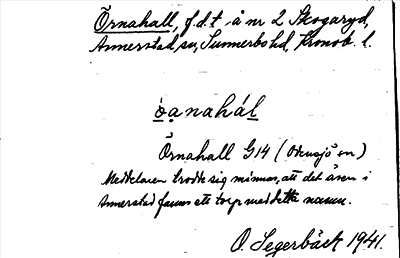 Örnahall, f.d.t å nr 2 Skogaryd,
Annerstad sn, Sunnerbo hd, Kronob. l.
òa̠nahál
Örnahall G14 (Odensjö sn)
Meddelaren trodde sig minnas, att det även i
Annerstad fanns ett torp med detta namn.
O. Segerbäck 1941.